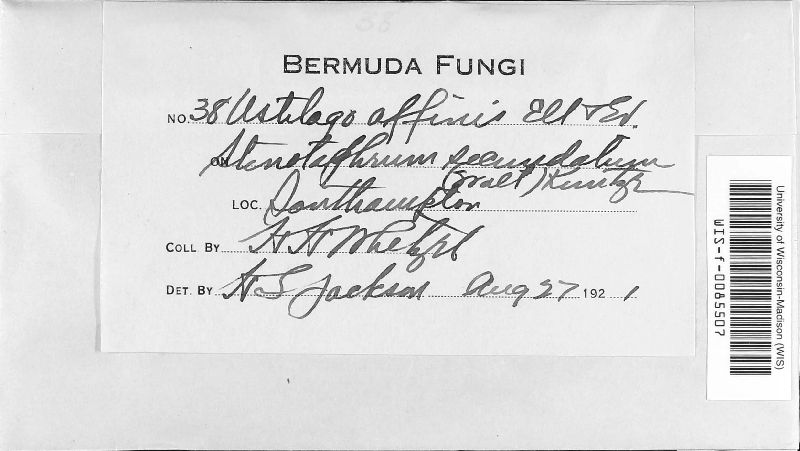 BERMUDA FUNGI
NO. 38 Ustilago affinis Ell & Ev.
ON Stenotaphrum secundatum
(Walt) Kuntze
LOC. Southampton
COLL BY H H Whetzel
DET. BY H S Jackson Aug 27 1921
University of Wisconsin-Madison (WIS)
WIS-f-0085507